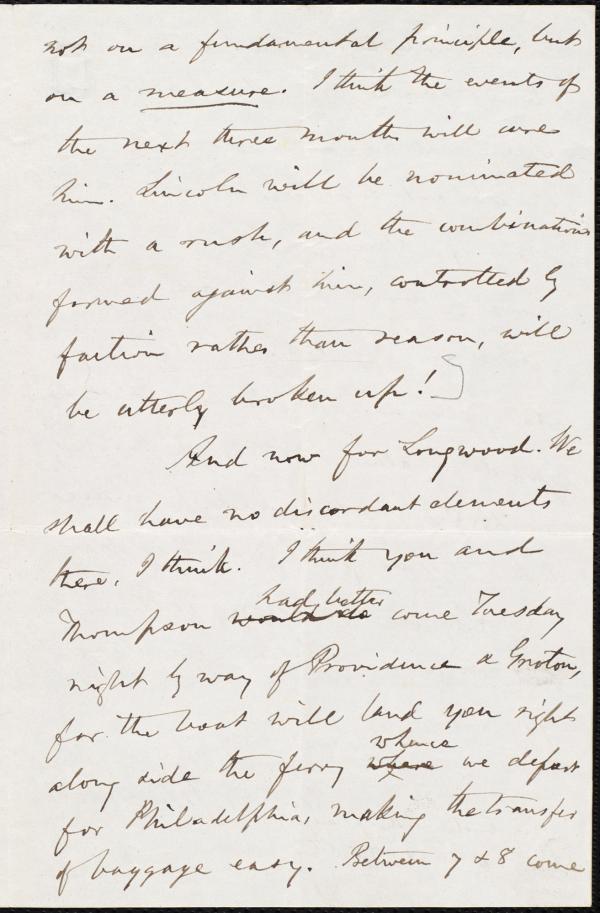 not on a fundamental principle, but
on a measure. I think the events of
the next three months will cure
him. Lincoln will be nominated
with a rush, and the combinations
formed against him, controlled by
faction rather than reason, will
be utterly broken up!]
And now for Longwood. We
shall have no discordant elements
there, I think. I think you and
had better
Thompson would do come Tuesday
night by way of Providence & Groton,
for the boat will land you right
whence
along side the ferry where we depart
for Philadelphia, making the transfer
of baggage easy. Between 7 & 8 come